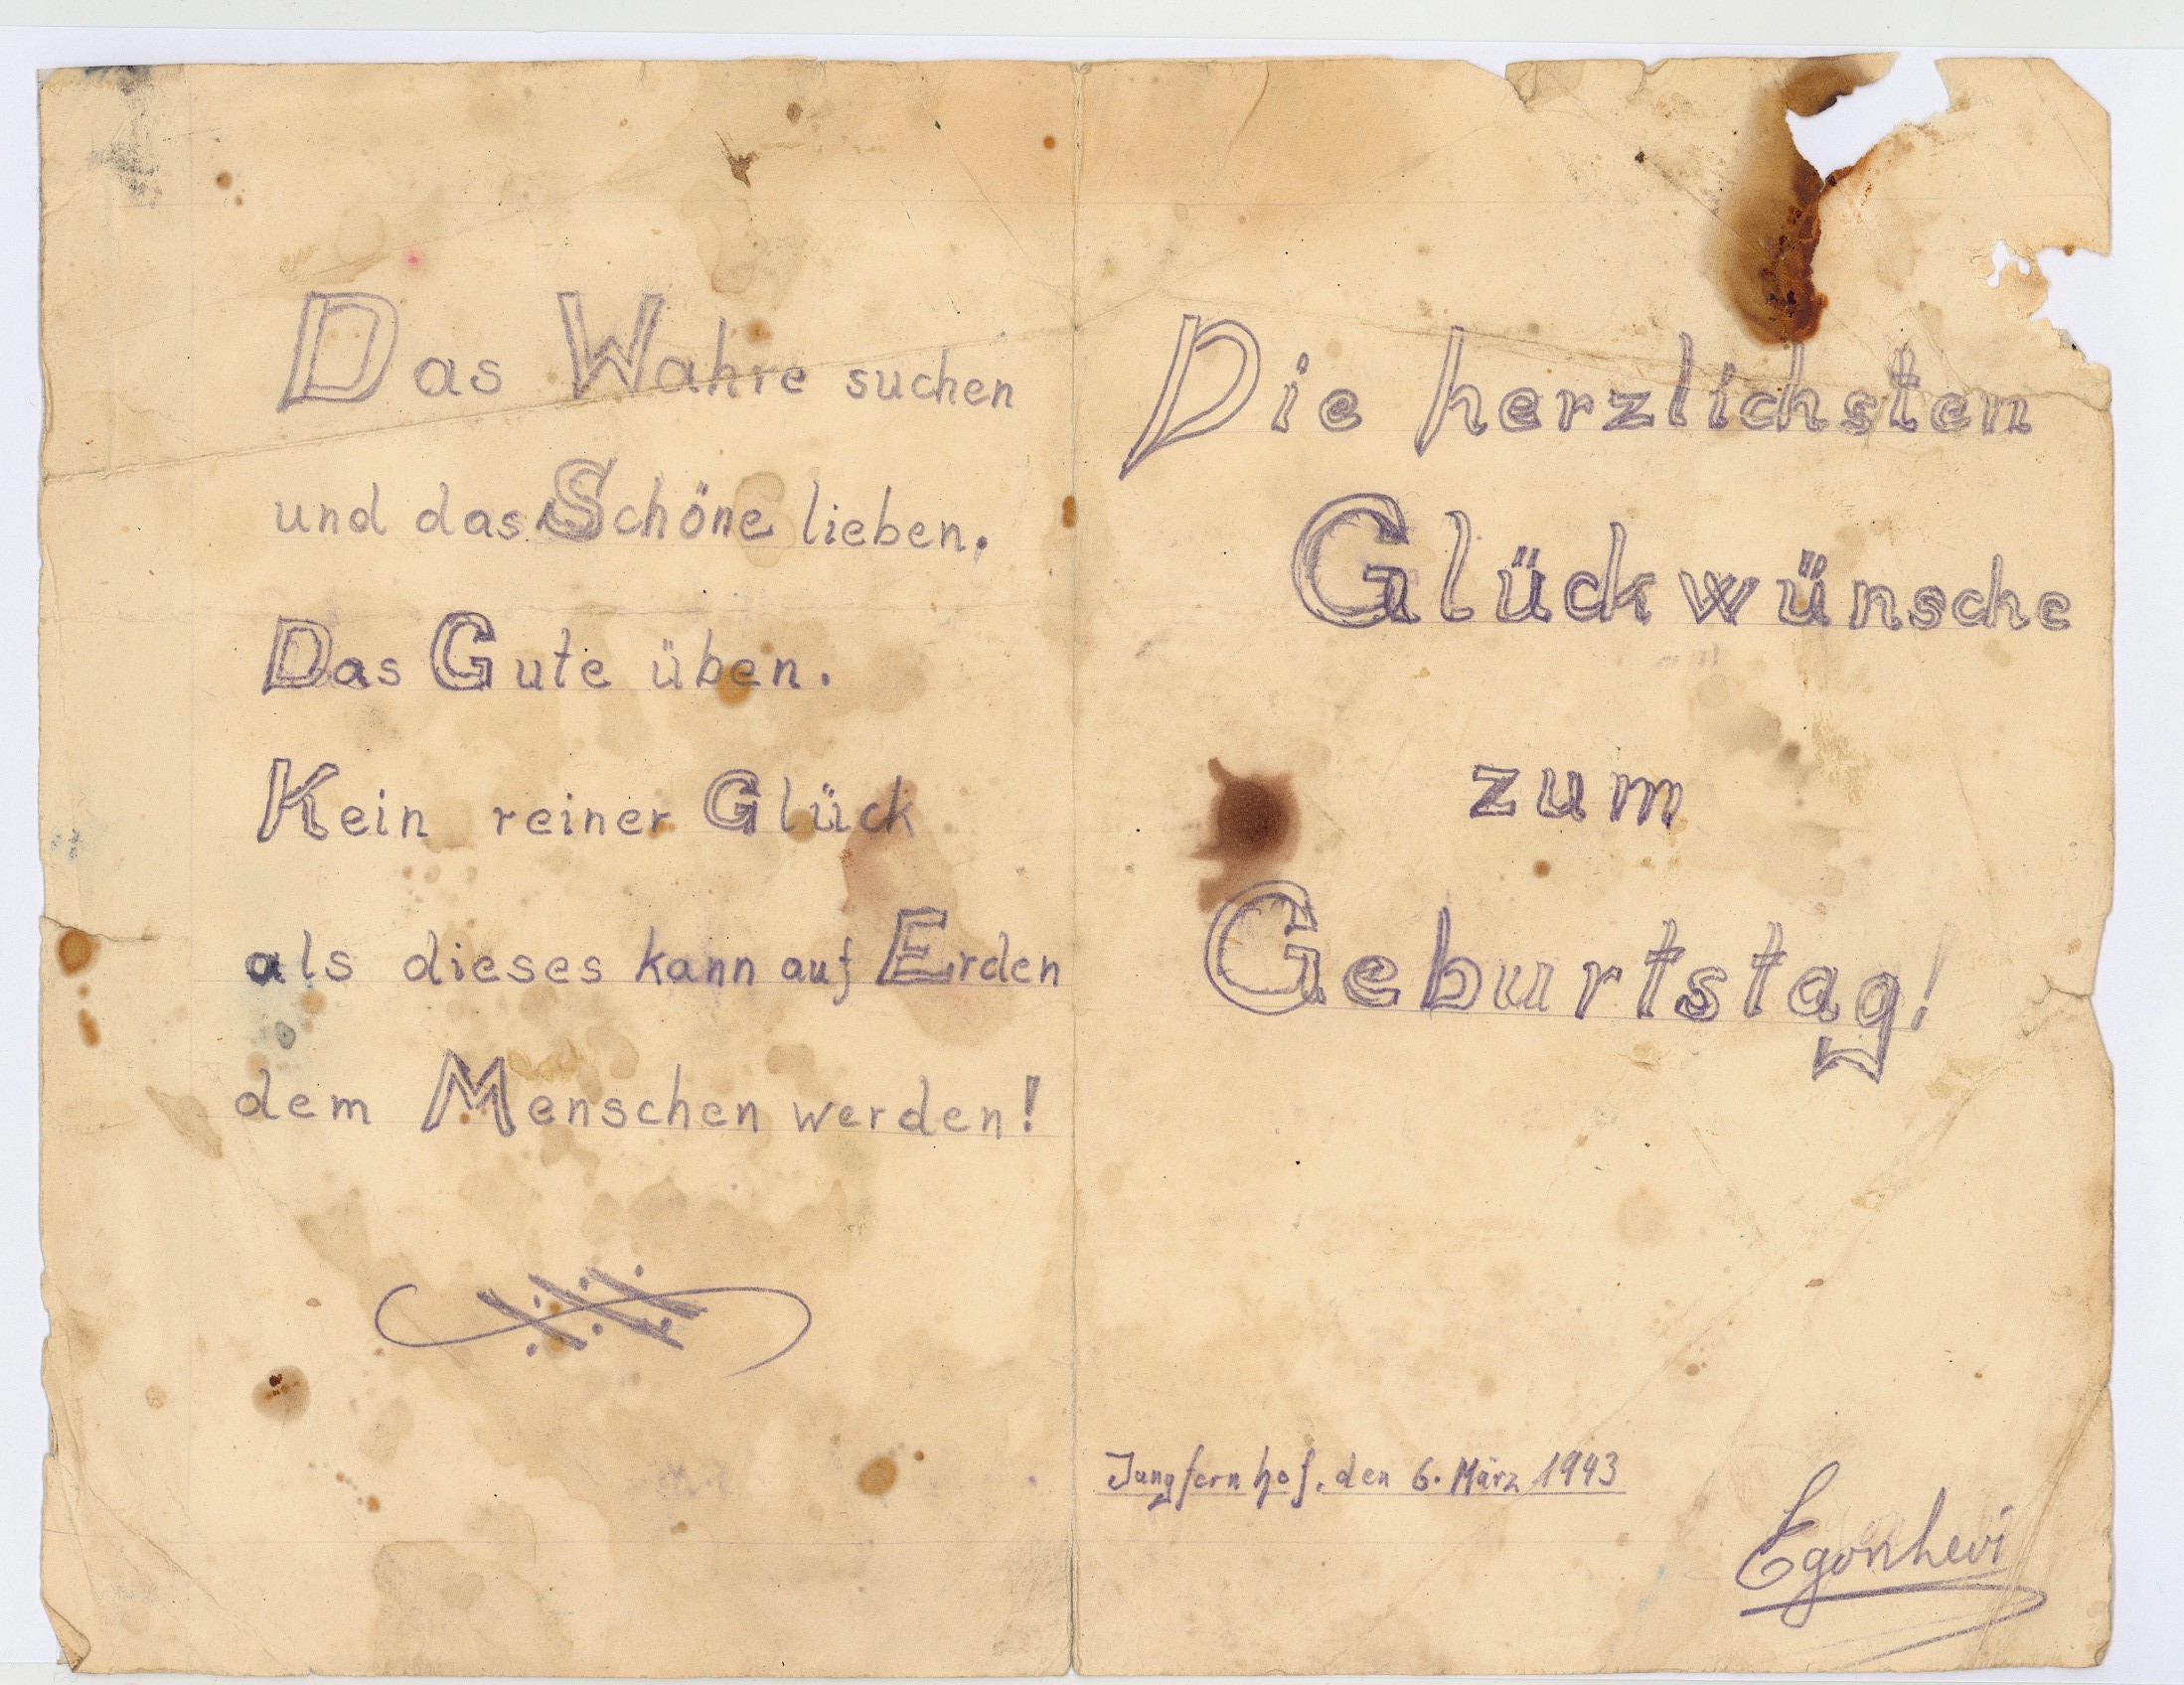 Das Wahre suchen
und das Schöne lieben.
Das Gute üben.
Kein reiner Glück
als dieses kann auf Erden
dem Menschen werden!
Die herzlichsten
Glückwünsche
zum
Geburtstag!
Jungfernhof, den 6. März 1943
Egon Levi